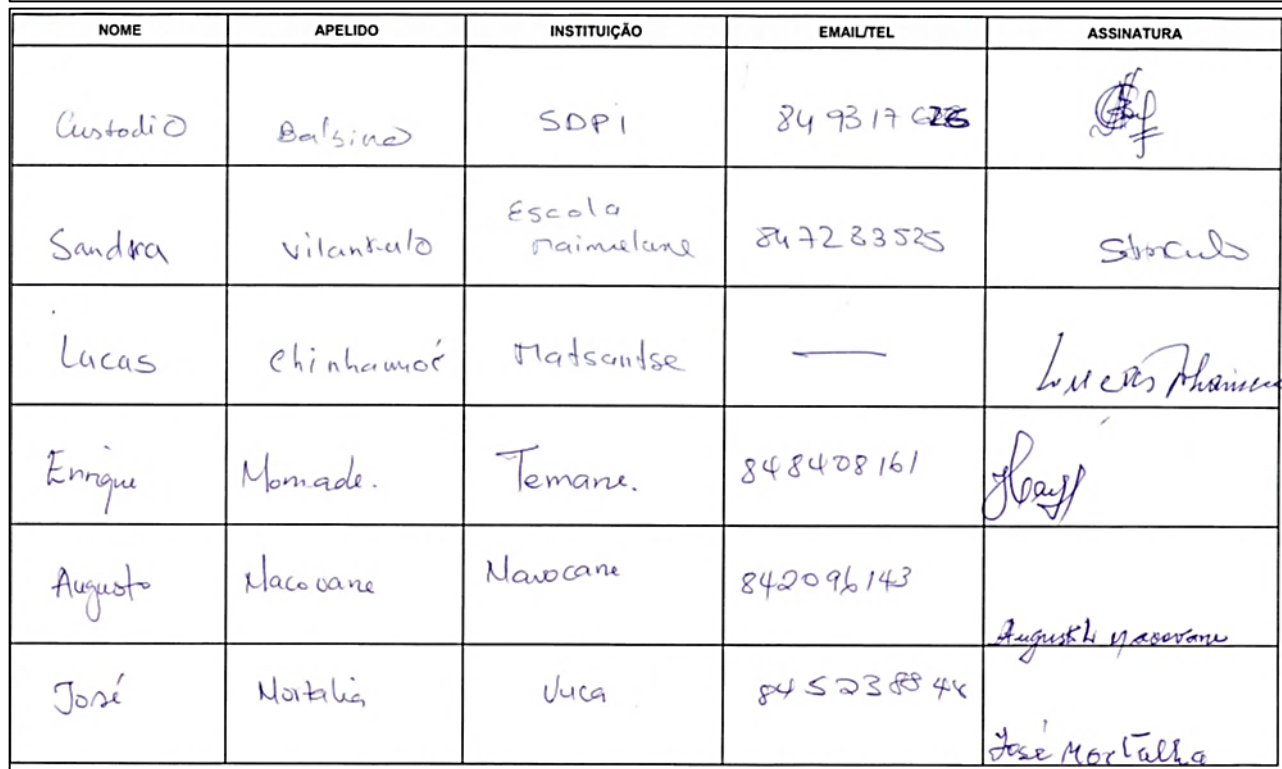 NOME APELIDO INSTITUIÇÃO EMAIL/TEL ASSINATURA
Custodio Balbino SDPI
Sandra Vilankulo Escola 847283525
Lucas Chinhamoé Matsantse —
Enrique Momade. Temane. 848408161
Augusto Macovane Mavocane 842096143
Augusto Macovane
José Mortalia Vuca
José Mortalha